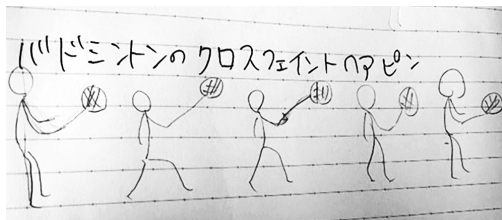 バドミントンのクロスフェイントヘアピン